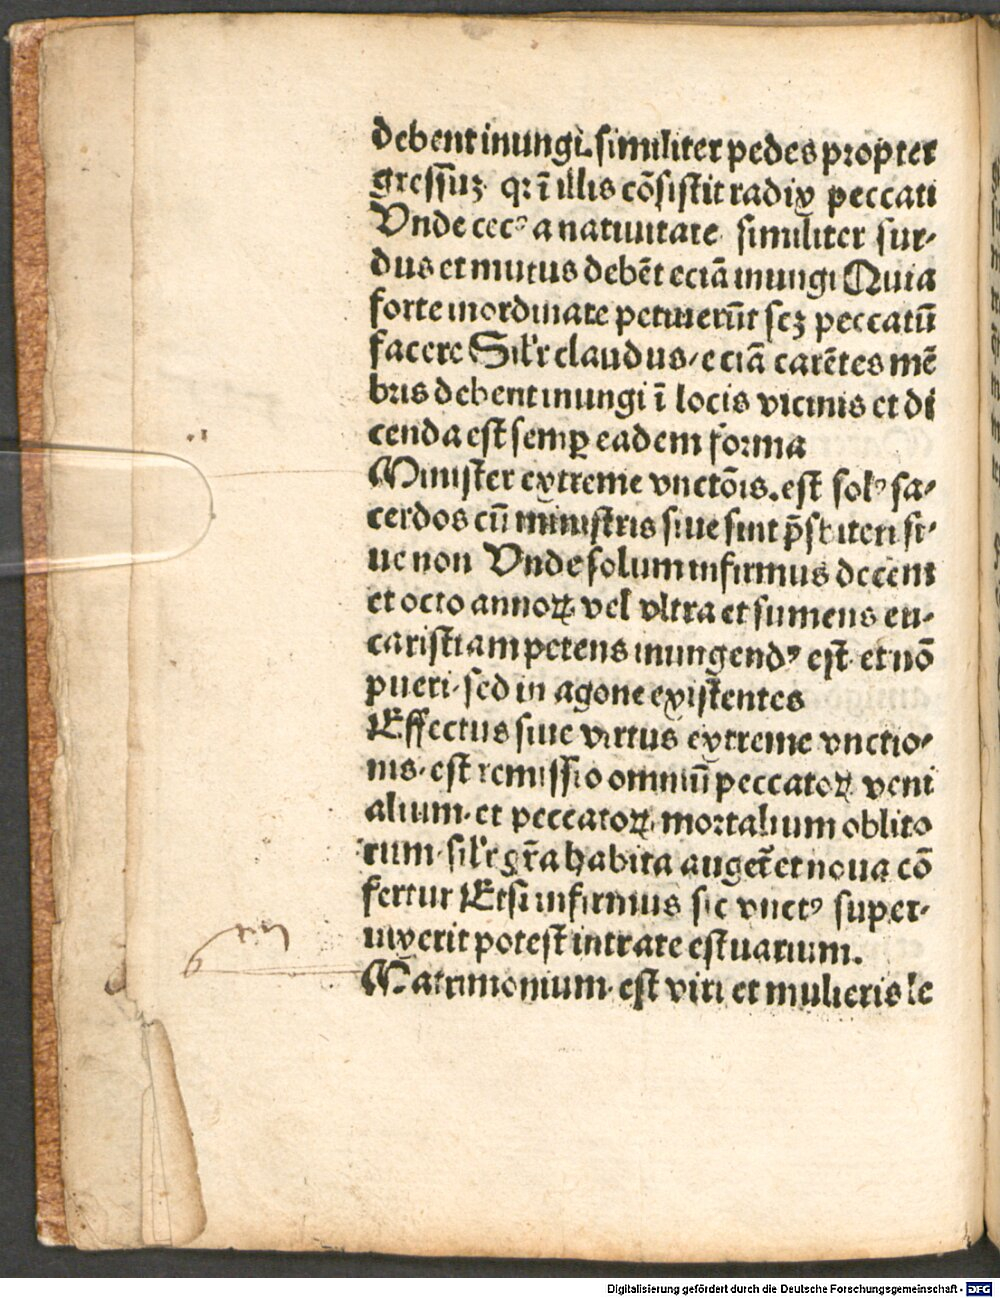 debent inungi. similiter pedes propter
gressuʒ. qꝛ ī illis cōsistit radix peccati
Unde cecꝰ a natiuitate similiter sur-
dus et mutus debēt eciā inungi Quia
forte inordinate petiuerūt scʒ peccatū
facere Sil'r claudus/eciā carētes mē
bris debent inungi ī locis vicinis et di
cenda est semꝑ eadem forma
Minister extreme vnctōis. est solꝰ sa-
cerdos cū ministris siue sint p̄sbiteri si-
ue non Unde solum infirmus decem
et octo annoꝝ vel vltra et sumens eu-
caristiam petens inungendꝰ est. et nō
pueri. sed in agone existentes
Effectus siue virtus extreme vnctio-
nis. est remissio omniū peccatoꝝ veni
alium. et peccatoꝝ mortalium oblito
rum. sil'r gr̄a habita auget᷑ et noua cō
fertur Etsi infirmus sic vnctꝰ super-
uixerit potest intrare estuarium.
Matrimonium. est viri et mulieris le
Digitalisierung gefördert durch die Deutsche Forschungsgemeinschaft - DFG